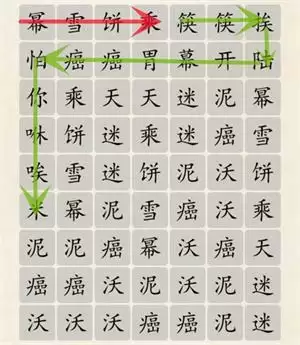 幂雪饼乘筷筷挨
怕癌癌胃幕开陆
你乘天天迷泥幂
咻饼迷乘迷癌雪
唉雪迷饼泥沃饼
米幂泥雪癌沃乘
泥泥癌幂沃癌天
癌癌沃泥泥泥迷
沃沃沃癌癌泥迷